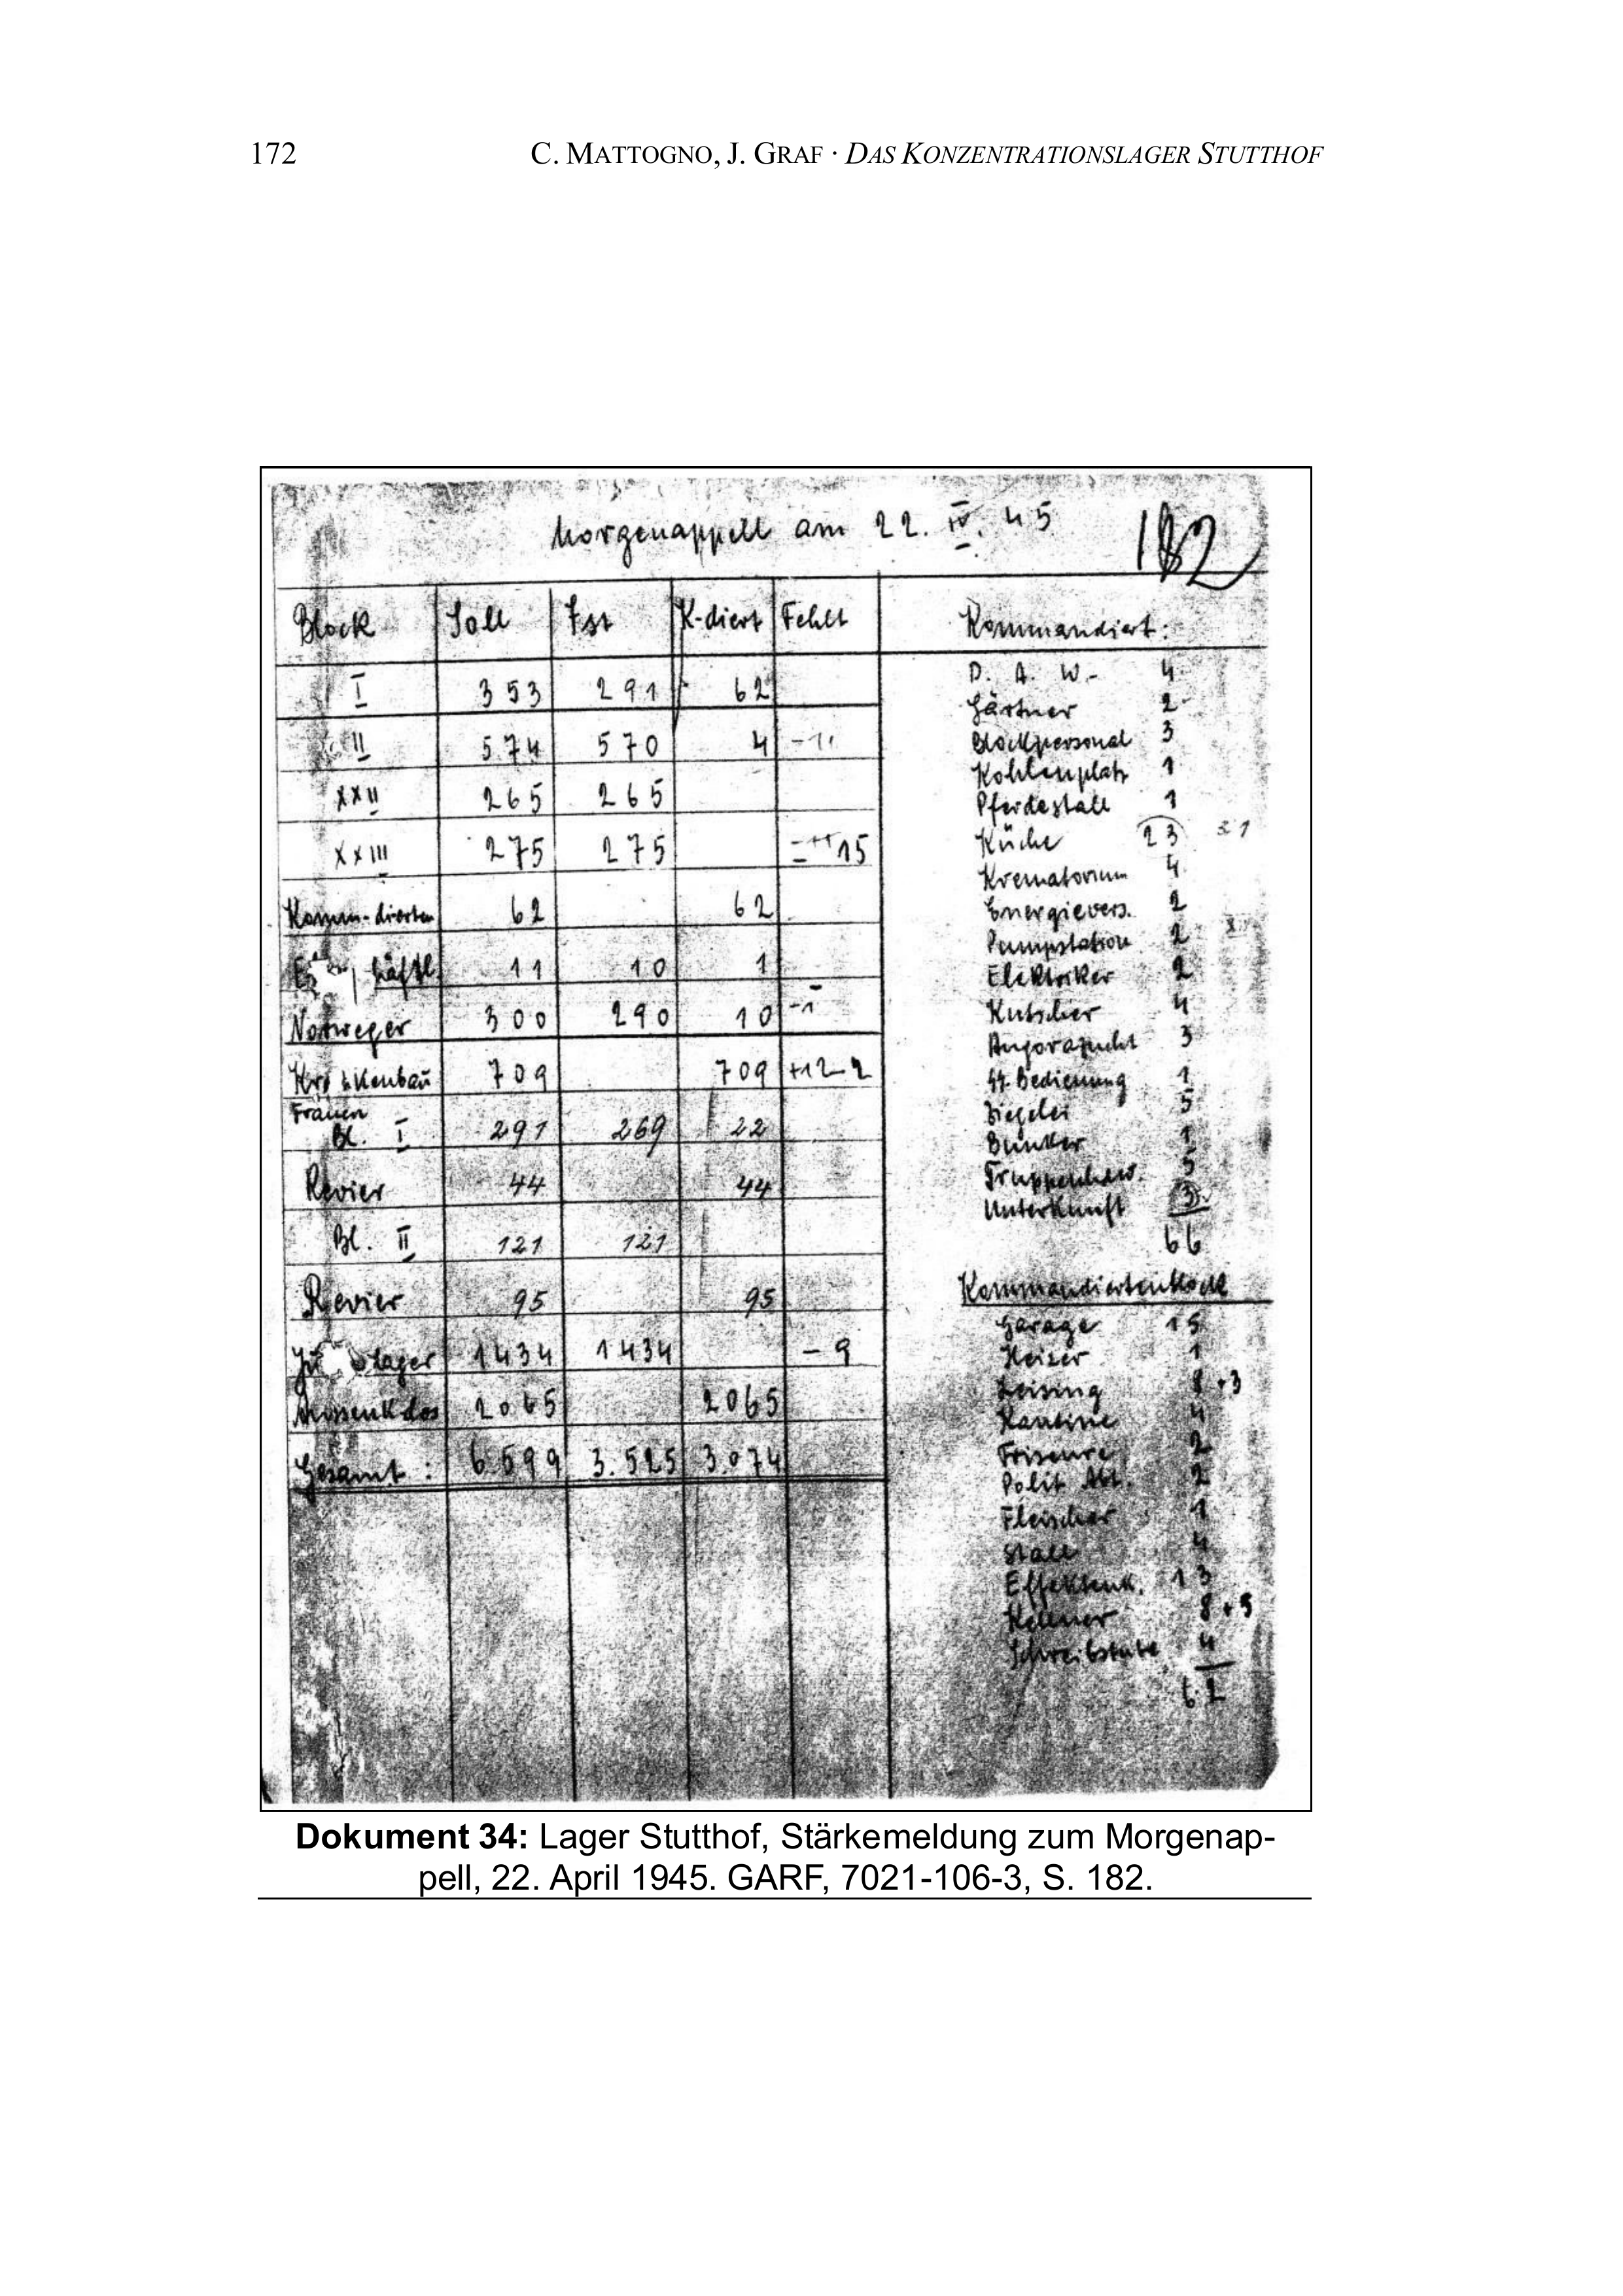 172 C. MATTOGNO, J. GRAF · DAS KONZENTRATIONSLAGER STUTTHOF
Morgenappell am 22. IV. 45
182
Block Soll Ist K-diert Fehlt
I 353 291 62
II 574 570 4
XXII 265 265
XXIII 275 275 15
Komm-dierten 62 62
häftl. 11 10 1
Norweger 300 290 10 -1
709 709 +12-2
Frauen
Bl. I 291 269 22
Revier 44 44
Bl. II 121 121
Revier 95 95
lager 1434 1434 - 9
Aussenkdos 2065 2065
Gesamt: 6.599 3.525 3.074
Kommandiert:
D. A. W. 4
Gärtner 2
Blockpersonal 3
Kohlenplatz 1
Pferdestall 1
Küche 23
Krematorium 4
Energievers. 2
Pumpstation 2
Elektriker 2
Kutscher 4
Angorazucht 3
SS. Bedienung 1
Ziegelei 5
Bunker 1
5
Unterkunft 3
66
Kommandiertenblock
Garage 15
Heizer 1
8 +3
Kantine 4
Friseure 2
Polit. Abt. 2
Fleischer 1
Stall 4
Effektenk. 13
Kellner 8 + 5
Schreibstube 4
62
Dokument 34: Lager Stutthof, Stärkemeldung zum Morgenap-
pell, 22. April 1945. GARF, 7021-106-3, S. 182.